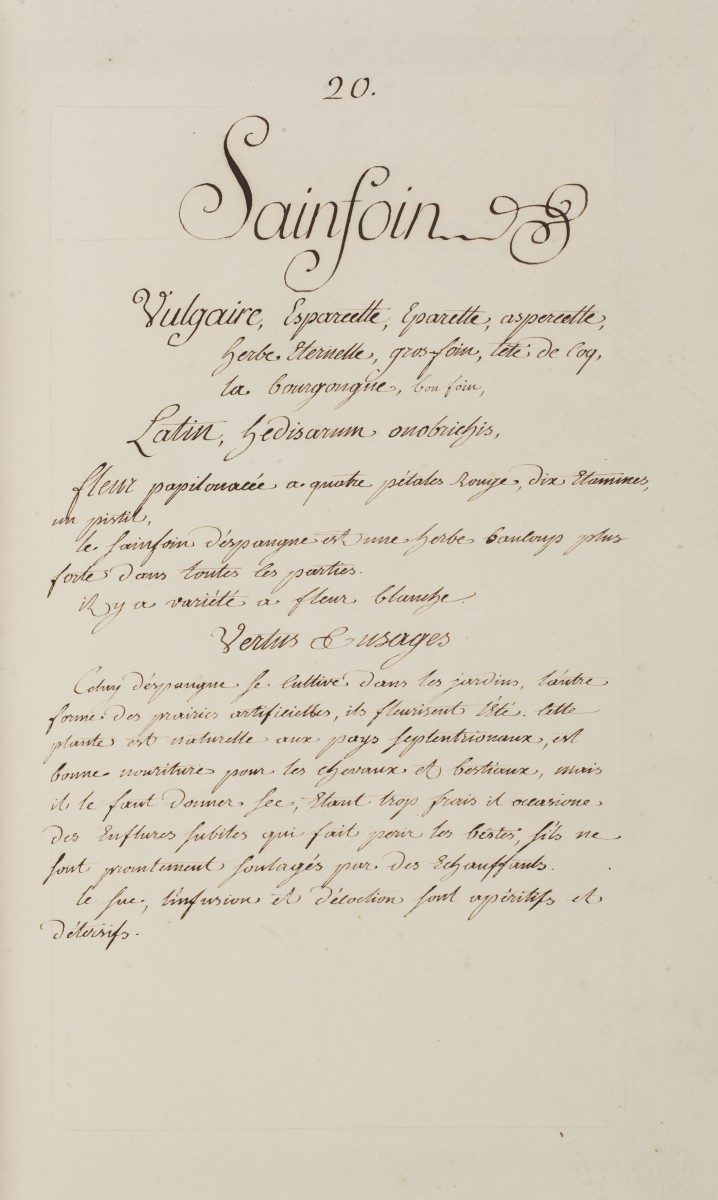 20.
Sainfoin
Vulgaire, Esparcette, Eparette, aspercette,
herbe Eternelle, gros-foin, tete de Coq,
la bourgongne, bon foin,
Latin, hedisarum onobrichis,
fleur papilonacée a quatre pétales Rouge, dix Etamines,
un pistil,
le sainfoin d'éspangne est une herbe bauloup plus
forte dans toutes les parties.
il y a variété a fleur blanche.
Vertus & usages
Celuy d'éspangne se Cultive dans les jardins, l'autre
forme des prairies artificielles, ils fleurisent l'été. Cette
plante est naturelle aux pays septentrionaux, est
bonne nouriture pour les chevaux et bestiaux, mais
il le faut donner sec, Etant trop frais il occasione
des Enflures subites qui fait perir les bestes, s'ils ne
sont promtement soulagés par des Echauffants.
le suc, l'infusion et décoction sont apéritifs et
détersifs.